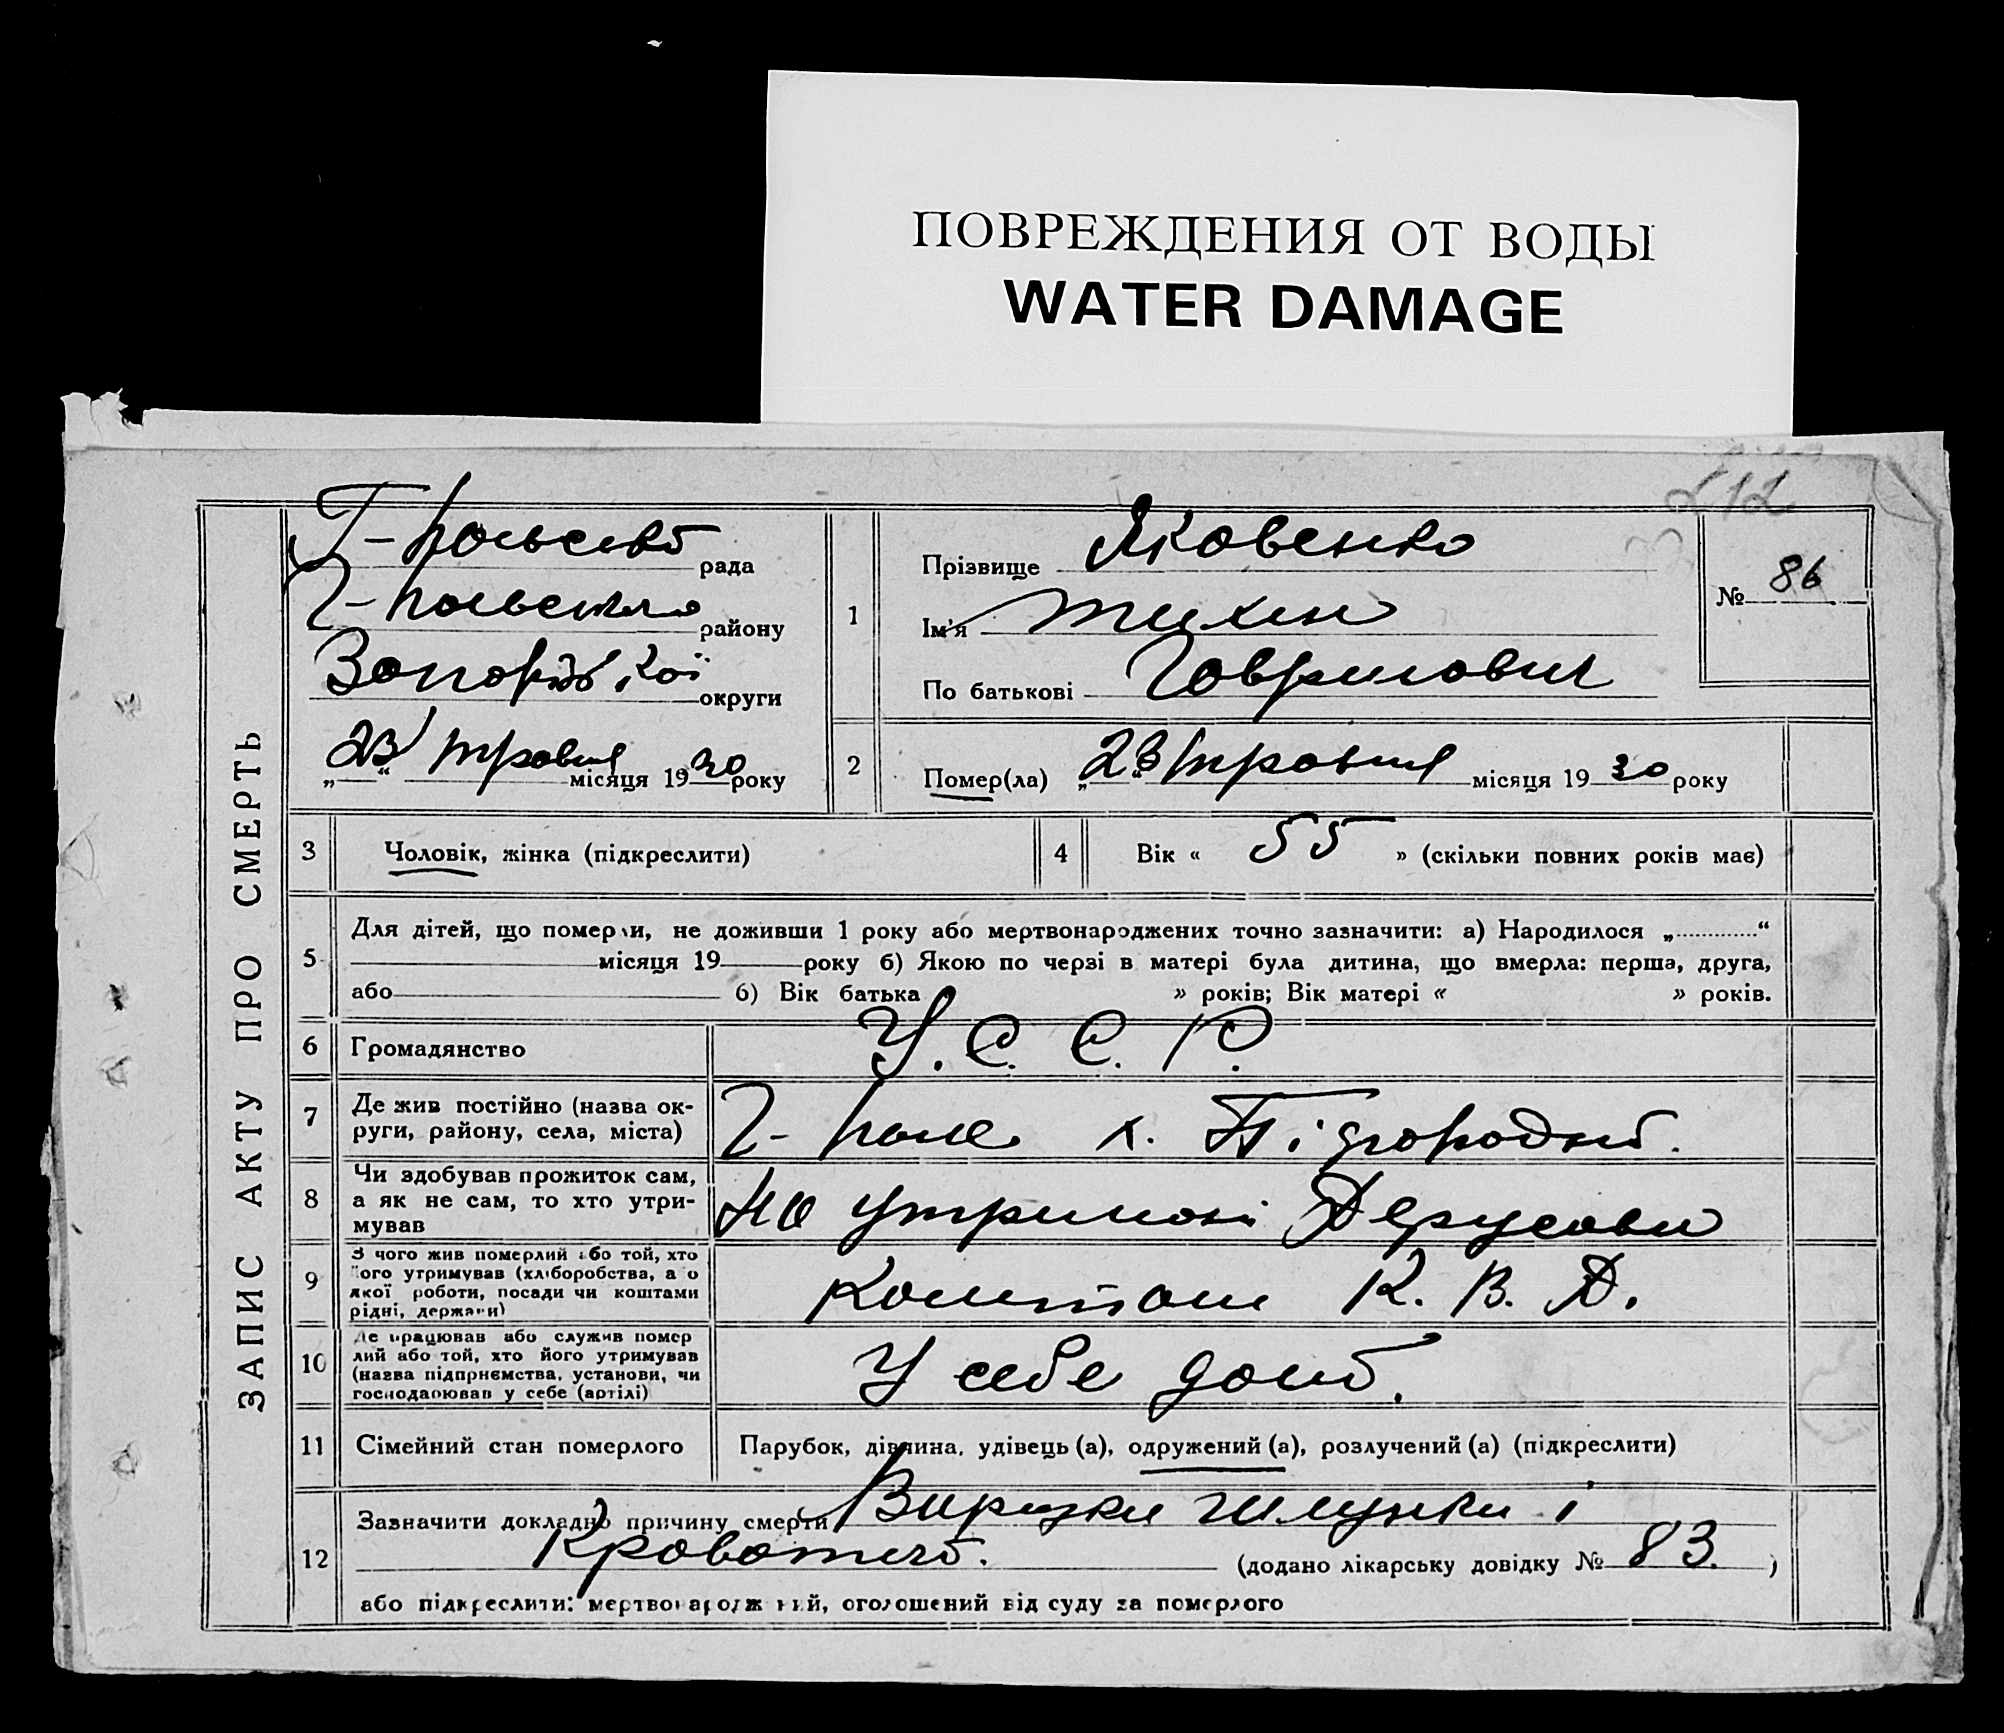 ПОВРЕЖДЕНИЯ ОТ ВОДЫ
WATER DAMAGE
212
ЗАПИС АКТУ ПРО СМЕРТЬ
Г-Польська рада
Г-Польського району
Запорізької округи
„23“ травня місяця 1930 року
1
Прізвище Яковенко
Ім'я Тихон
По батькові Гаврилович
№ 86
2
Помер(ла) „23“ травня місяця 1930 року
3
Чоловік, жінка (підкреслити)
4
Вік « 55 » (скільки повних років має)
5
Для дітей, що померли, не доживши 1 року або мертвонароджених точно зазначити: а) Народилося „............“
місяця 19 року б) Якою по черзі в матері була дитина, що вмерла: перша, друга,
або 6) Вік батька » років; Вік матері « » років.
6
Громадянство
У. С. С. Р.
7
Де жив постійно (назва ок-
руги, району, села, міста)
Г-Поле х. Підгородні.
8
Чи здобував прожиток сам,
а як не сам, то хто утри-
мував
На утримані
9
З чого жив померлий або той, хто
його утримував (хліборобства, а о
якої роботи, посади чи коштами
рідні, держави)
Коштом К. В. Д.
10
Де працював або служив помер
лий або той, хто його утримував
(назва підприємства, установи, чи
господарював у себе (артілі)
У себе дома.
11
Сімейний стан померлого
Парубок, дівчина, удівець (а), одружений (а), розлучений (а) (підкреслити)
12
Зазначити докладно причину смерти шлунки і
Кровотеча.
(додано лікарську довідку № 83. )
або підкреслити: мертвонароджений, оголошений від суду за померлого